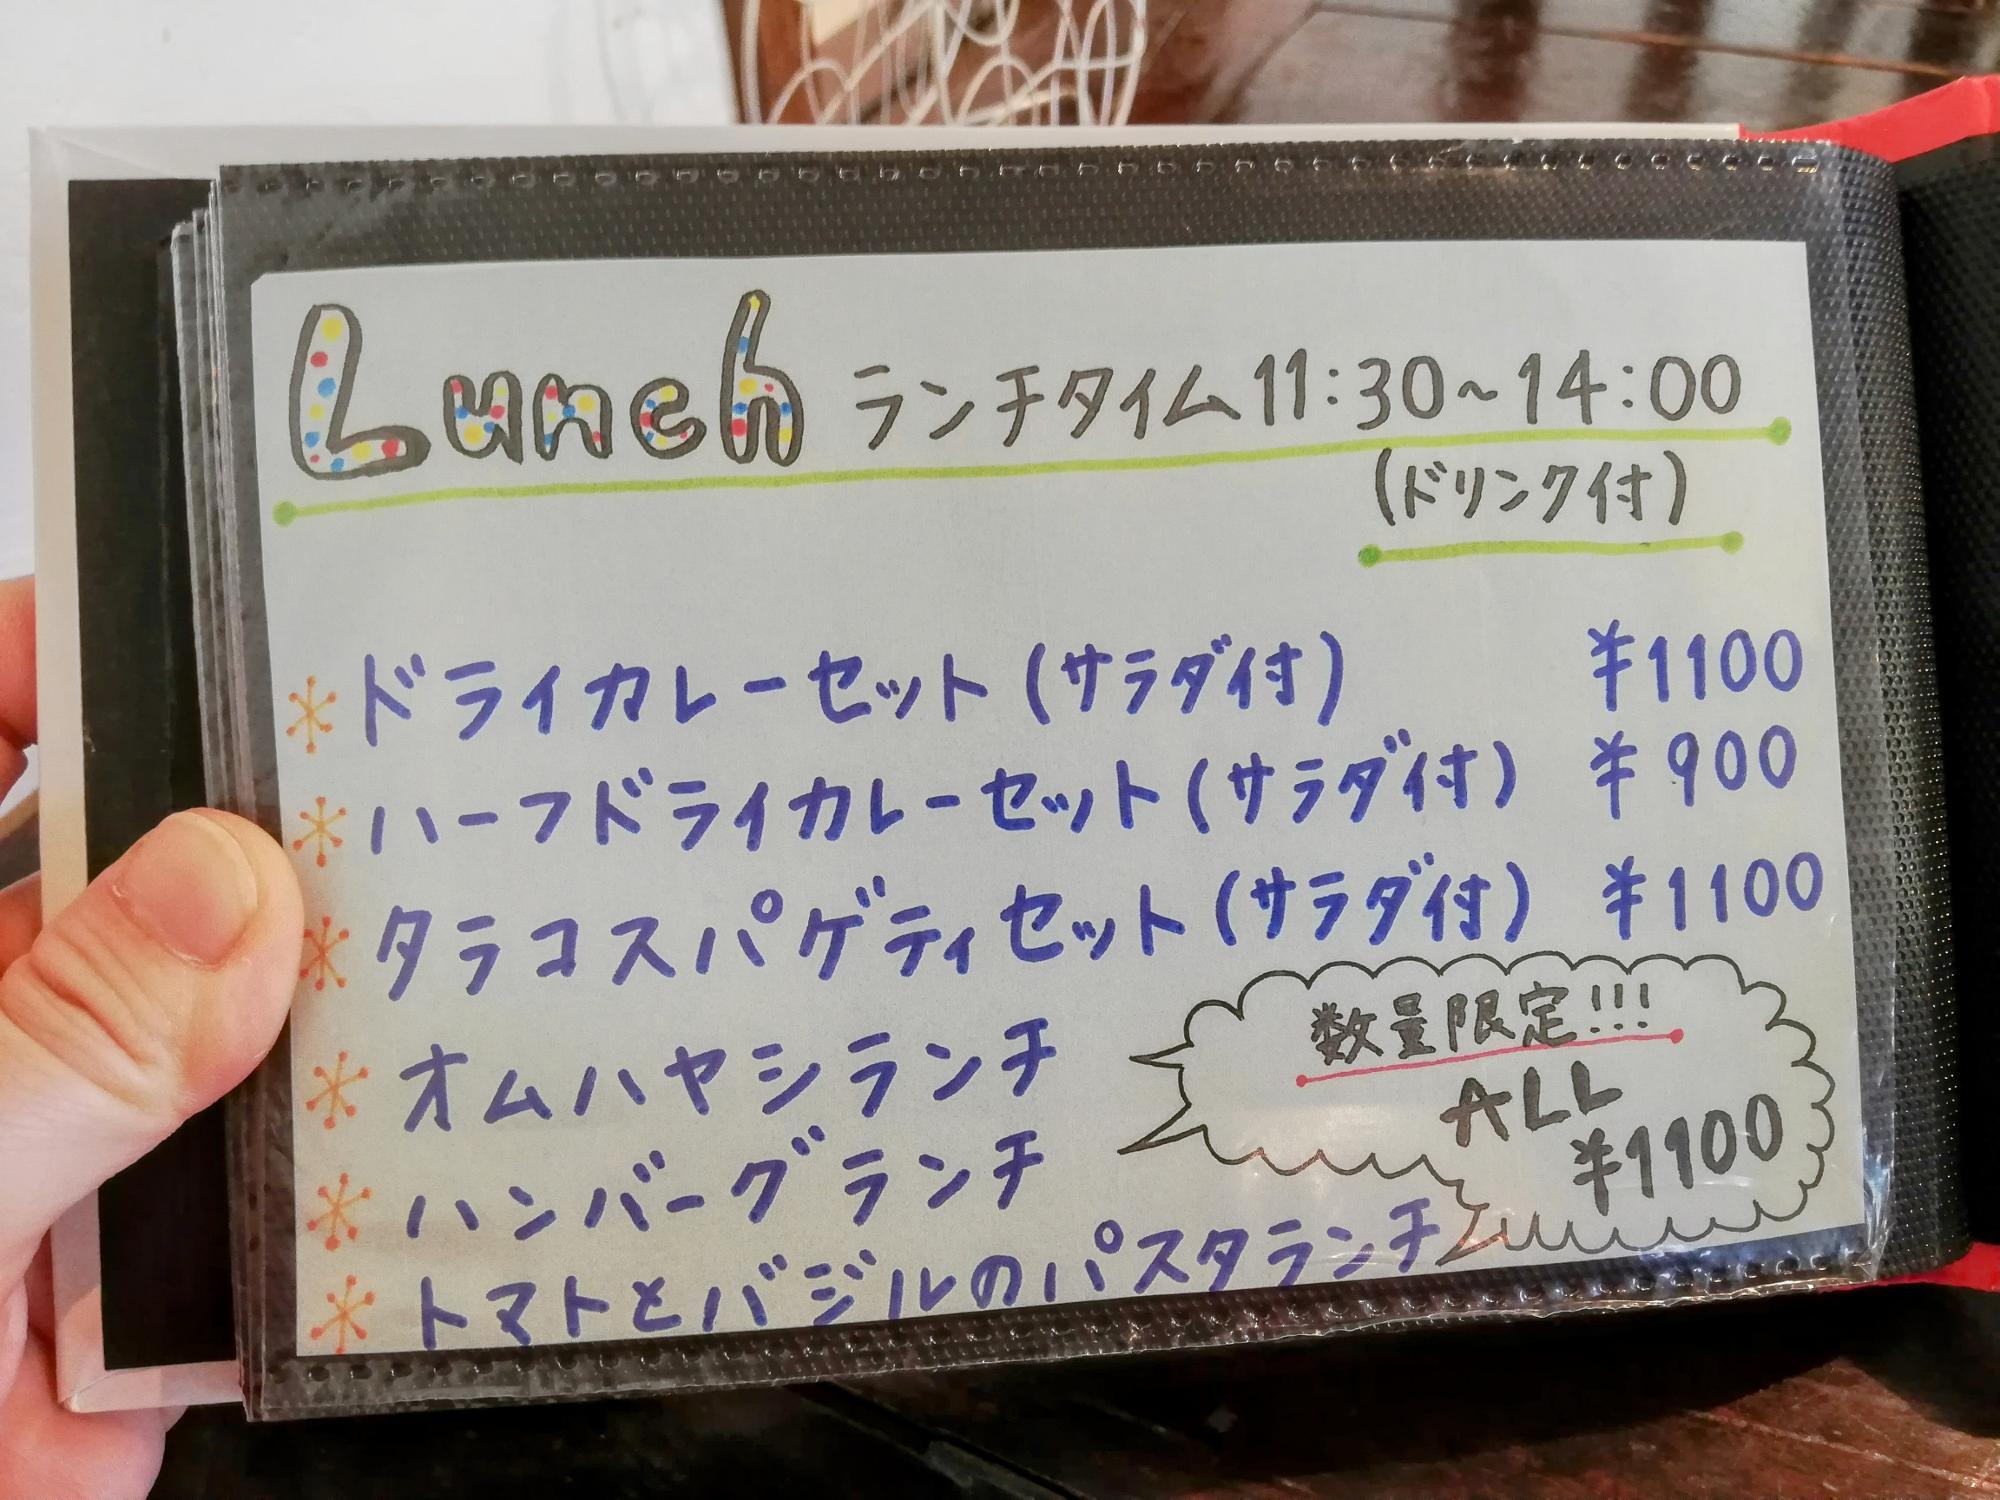 Lunch ランチタイム 11:30~14:00
(ドリンク付)
ドライカレーセット(サラダ付) ¥1100
ハーフドライカレーセット(サラダ付) ¥900
タラコスパゲティセット(サラダ付) ¥1100
オムハヤシランチ
ハンバーグランチ
トマトとバジルのパスタランチ
数量限定!!!
ALL
¥1100